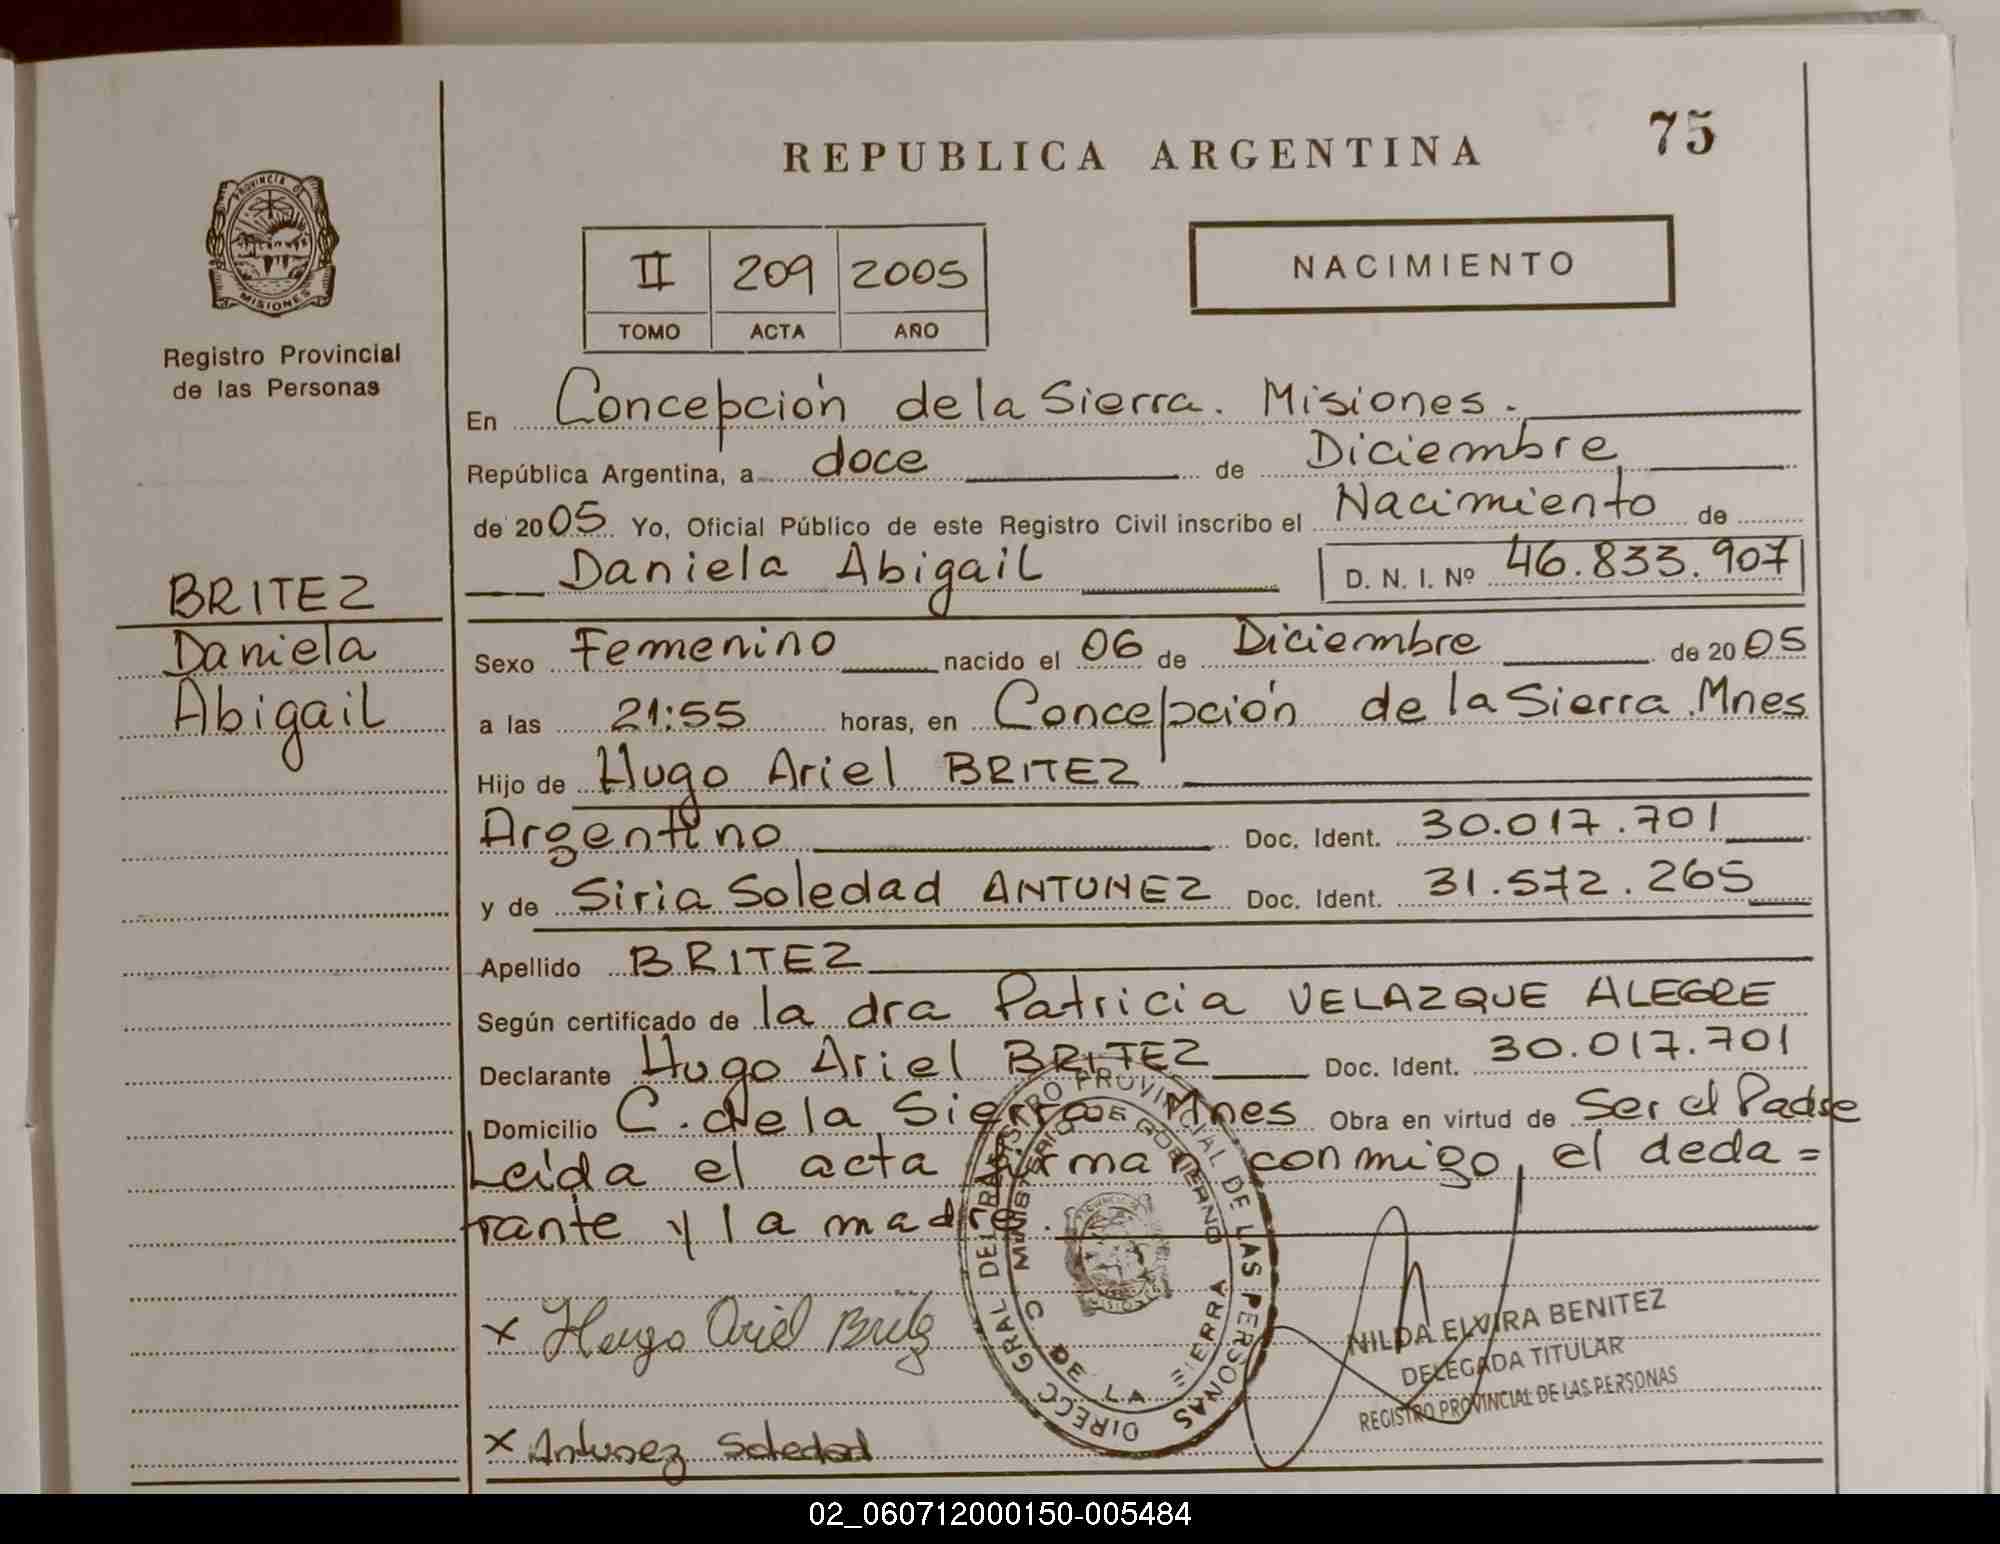 75
REPUBLICA ARGENTINA
PROVINCIA DE
MISIONES
Registro Provincial
de las Personas
II 209 2005
TOMO ACTA AÑO
NACIMIENTO
En Concepción de la Sierra. Misiones.
República Argentina, a doce de Diciembre
de 2005 Yo, Oficial Público de este Registro Civil inscribo el Nacimiento de
Daniela Abigail D. N. I. Nº 46.833.907
BRITEZ
Daniela
Abigail
Sexo Femenino nacido el 06 de Diciembre de 2005
a las 21:55 horas, en Concepción de la Sierra. Mnes
Hijo de Hugo Ariel BRITEZ
Argentino Doc. Ident. 30.017.701
y de Siria Soledad ANTUNEZ Doc. Ident. 31.572.265
Apellido BRITEZ
Según certificado de la dra Patricia VELAZQUE ALEGRE
Declarante Hugo Ariel BRITEZ Doc. Ident. 30.017.701
Domicilio C. de la Sierra Mnes Obra en virtud de Ser el Padre
Leída el acta firman conmigo, el decla=
rante y la madre.
DIRECC GRAL DEL REGISTRO PROVINCIAL DE LAS PERSONAS
MINISTERIO DE GOBIERNO
C. DE LA SIERRA
x Hugo Ariel Britez
NILDA ELVIRA BENITEZ
DELEGADA TITULAR
REGISTRO PROVINCIAL DE LAS PERSONAS
x Antunez Soledad
02_060712000150-005484